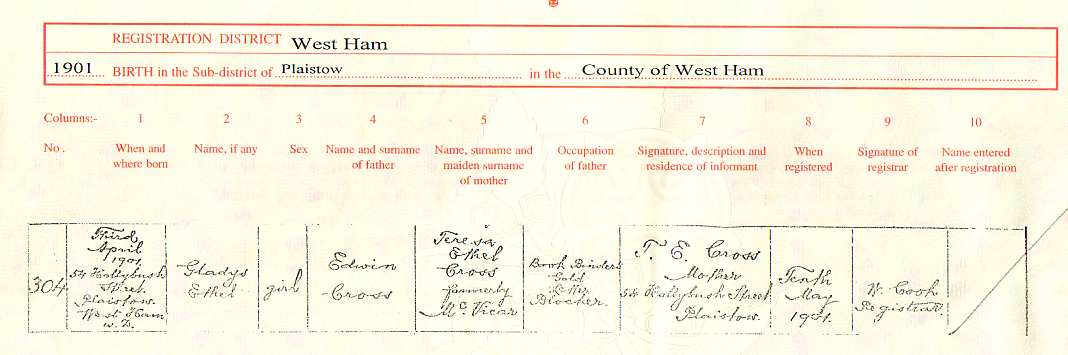 REGISTRATION DISTRICT West Ham
1901 BIRTH in the Sub-district of Plaistow in the County of West Ham
Columns:- 1 2 3 4 5 6 7 8 9 10
No. When and where born Name, if any Sex Name and surname of father Name, surname and maiden surname of mother Occupation of father Signature, description and residence of informant When registered Signature of registrar Name entered after registration
304
Third
April
1901
54 Hollybush
Street
Plaistow
West Ham
U.D.
Gladys
Ethel
girl
Edwin
Cross
Teresa
Ethel
Cross
formerly
McVicar
Book Binders
Gold
Blocker.
T. E. Cross
Mother
54 Hollybush Street
Plaistow.
Tenth
May
1901
W. Cook
Registrar.